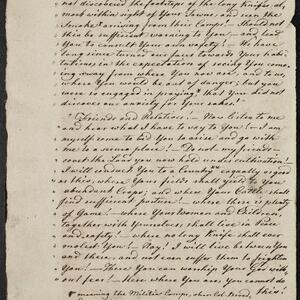 not discovered the footsteps of the long Knife al,
most within sight of your Towns, and seen the
Smoke* arrising from their Camps! – Should not
this be sufficient warning to You; – and lead
You to consult Your own safety! – We have
long since turned our face towards Your habi,
tations, in the expectation of seeing You come,
ing away from where You now are, and to us
where You would be out of danger; but You
were so engaged in praying! that You did not
discover our anxiety for Your sakes!
Friends and Relations! – Now listen to me
and hear what I have to say to You! – I am
myself come to bid You arise and go with me
to a secure place! – Do not my friends
covet the Land you now hold under cultivation!
I will conduct You to a Country equally as good
as this, where Your fields shall yield You
abundant Crops; and where Your Cattle shall
find sufficient pasture! – where there is plenty
of Game! – where Your women and Children,
together with Yourselves, shall live in peace
and safety! – where no long Knife shall ever
molest You! – Nay! I will live between You
and them, and not even suffer them to frighten
You! – There You can worship Your God with,
out fear! – Here where You are, You cannot do
this!
* meaning the Militia Camps, when Col. Brod,